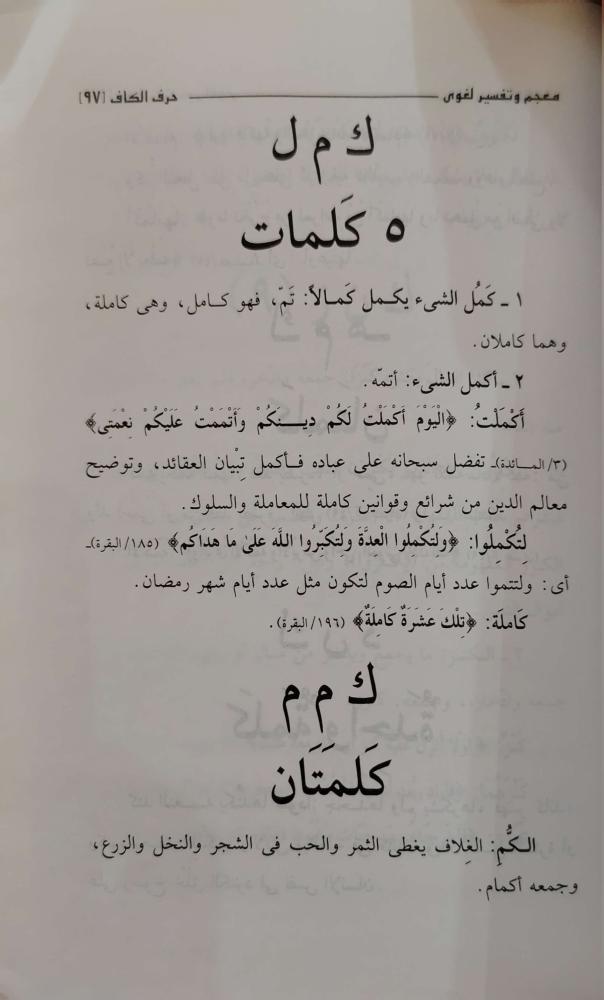 معجم وتفسير لغوى حرف الكاف [٩٧]
ك م ل
٥ كَلمات
١ ـ كَمُل الشىء يكمل كَمـالاً: تَمّ، فهو كـامل، وهى كاملة،
وهما كاملان.
٢ ـ أكمل الشىء: أتمّه.
أَكْمَلْتُ: ﴿الْيَوْمَ أَكْمَلْتُ لَكُمْ دِيـنَكُمْ وَأَتْمَمْتُ عَلَيْكُمْ نِعْمَتِى﴾
(٣/ المـائدة)ـ تفضل سبحانه على عباده فـأكمل تِبْيان العقائد، وتوضيح
معالم الدين من شرائع وقوانين كاملة للمعاملة والسلوك.
لِتُكْمِلُوا: ﴿وَلِتُكْمِلُوا الْعِدَّةَ وَلِتُكَبِّرُوا اللَّهَ عَلَىٰ مَا هَدَاكُم﴾ (١٨٥/ البقرة)ـ
أى: ولتتموا عدد أيام الصوم لتكون مثل عدد أيام شهر رمضان.
كَاملَة: ﴿تِلْكَ عَشَرَةٌ كَامِلَةٌ﴾ (١٩٦/ البقرة).
ك م م
كَلمَتَان
الـكُّمِ: الغِلاف يغطى الثمر والحب فى الشجر والنخل والزرع،
وجمعه أكمام.